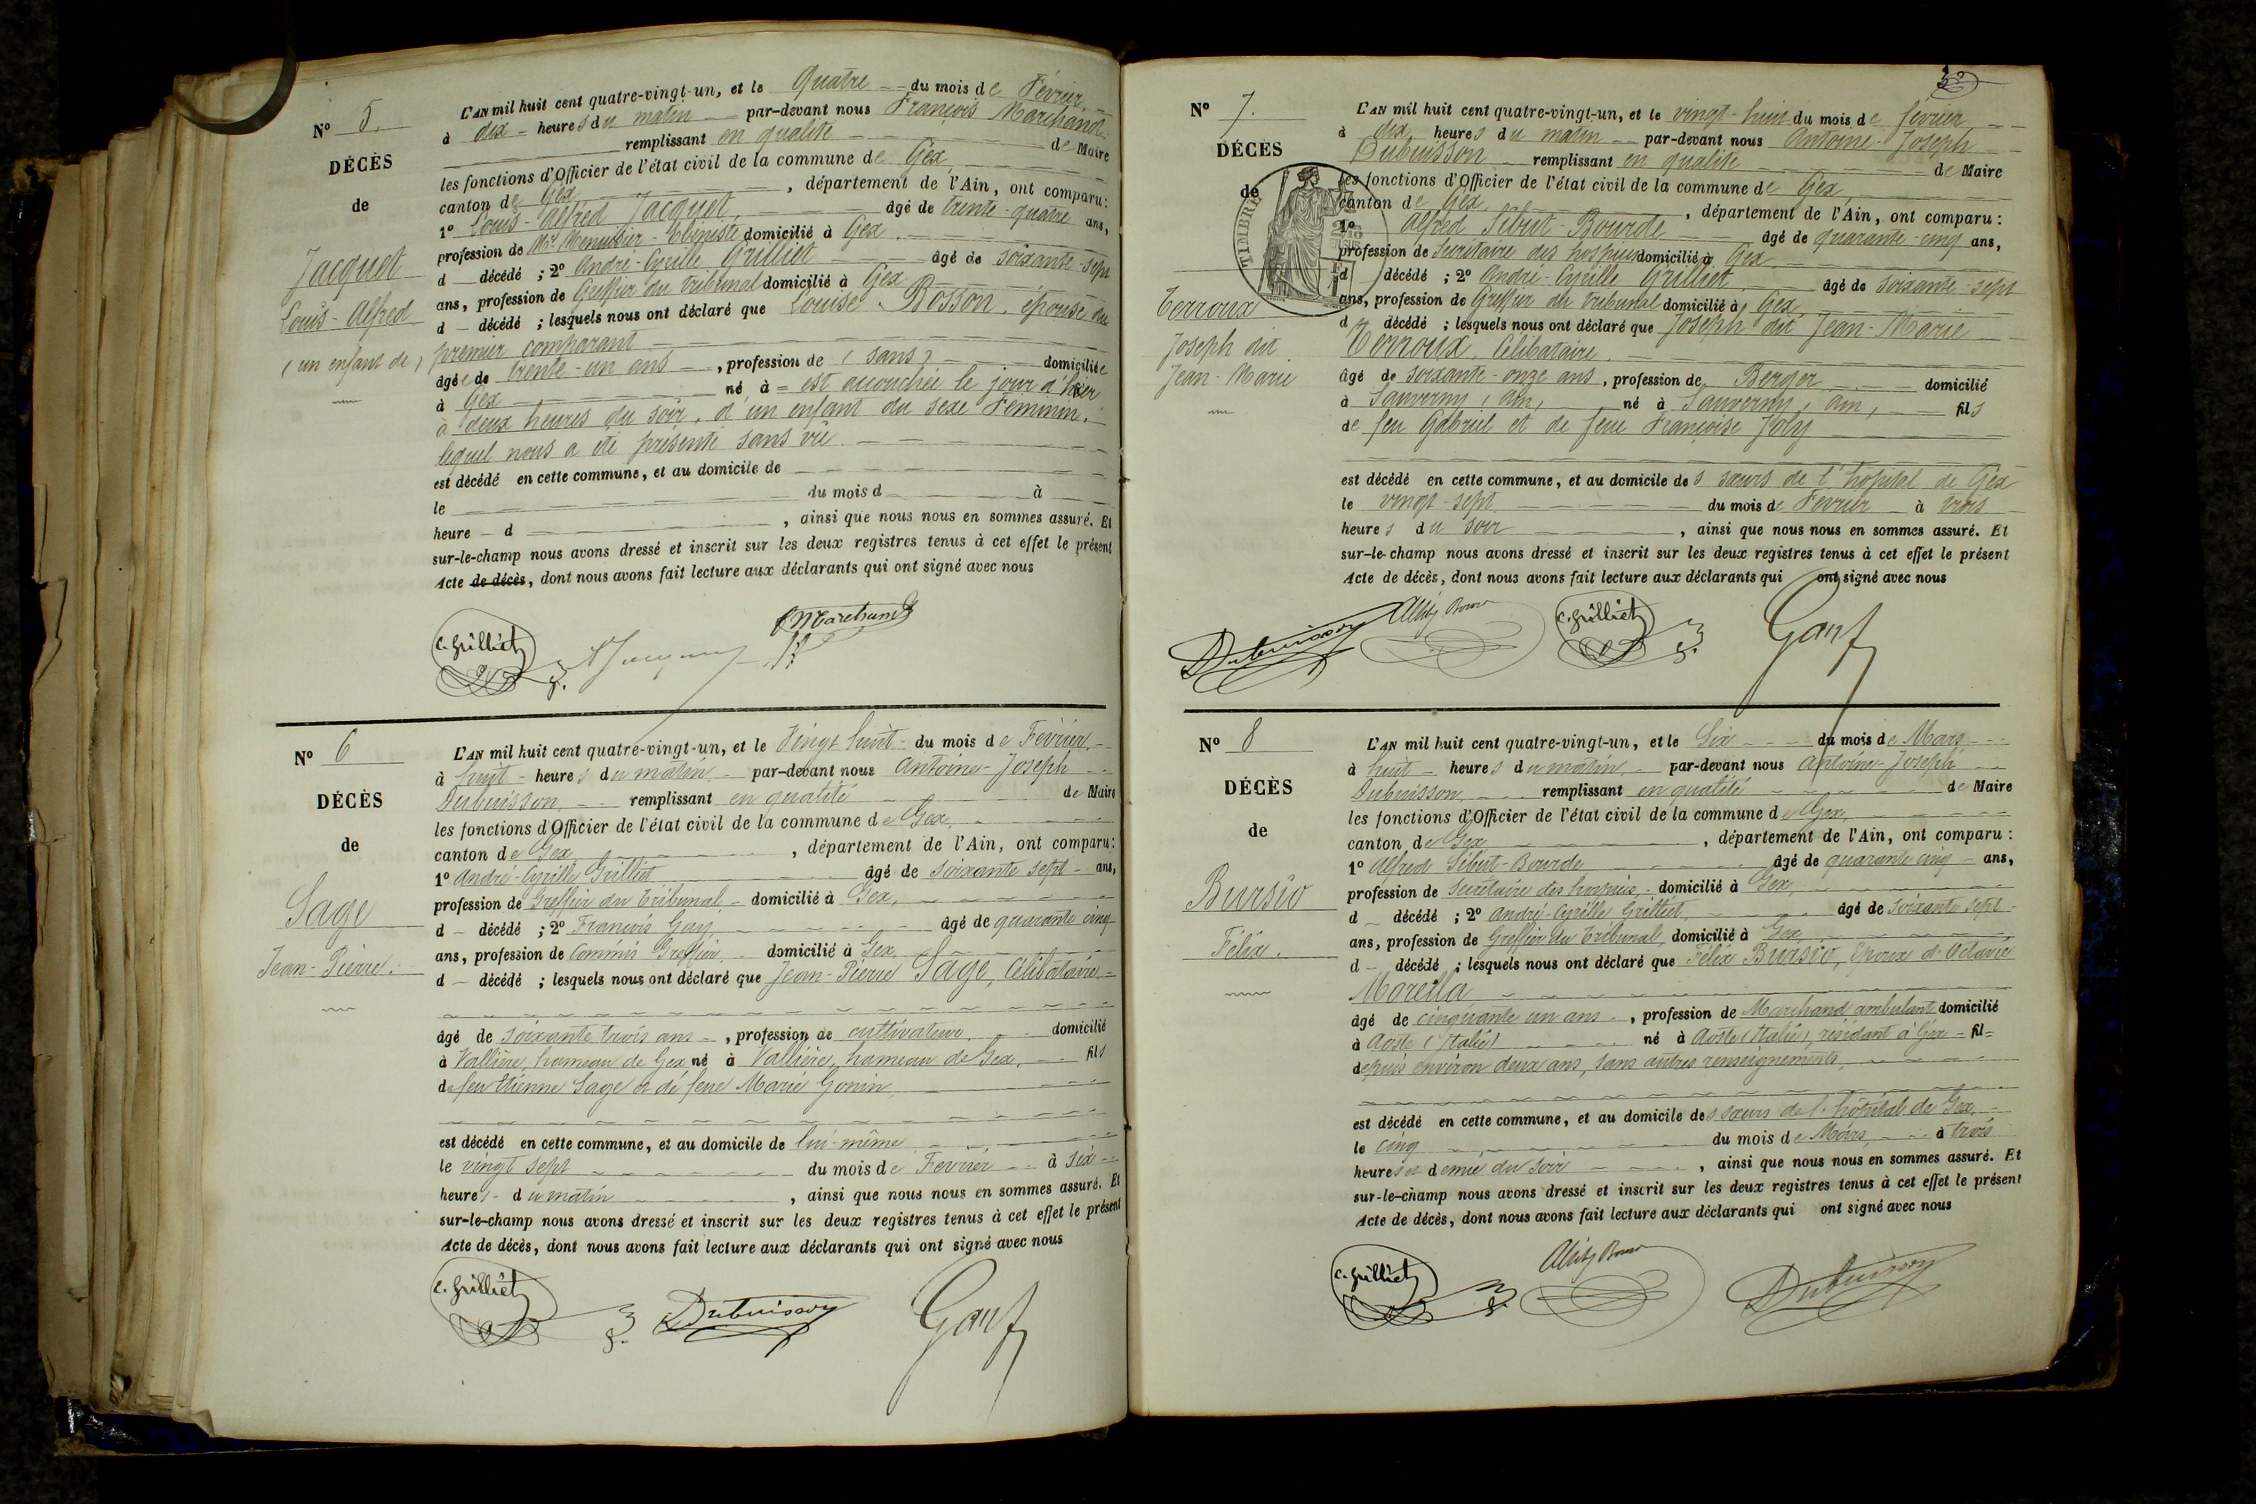 Nº 5.
DÉCÈS
de
Jacquet
Louis-Alfred
(un enfant de)
L'AN mil huit cent quatre-vingt-un, et le Quatre du mois de Février
à dix heures du matin par-devant nous François Marchand
remplissant en qualité de Maire
les fonctions d'Officier de l'état civil de la commune de Gex
canton de Gex, département de l'Ain, ont comparu:
1º Louis-Alfred Jacquet, âgé de trente-quatre ans,
profession de Me Menuisier-Ebéniste domicilié à Gex,
d décédé ; 2º André-Cyrille Grilliet âgé de soixante-sept
ans, profession de Greffier du tribunal domicilié à Gex
d décédé ; lesquels nous ont déclaré que Louise Bosson, épouse du
premier comparant
âgée de trente-un ans, profession de (sans) domiciliée
à Gex né à = est accouchée le jour d'hier
à deux heures du soir, d'un enfant du sexe Féminin,
lequel nous a été présenté sans vie.
est décédé en cette commune, et au domicile de
le du mois d à
heure d , ainsi que nous nous en sommes assuré. Et
sur-le-champ nous avons dressé et inscrit sur les deux registres tenus à cet effet le présent
Acte de décès, dont nous avons fait lecture aux déclarants qui ont signé avec nous
C. Grilliet
Marchand
Nº 6
DÉCÈS
de
Sage
Jean-Pierre.
L'AN mil huit cent quatre-vingt-un, et le Vingt huit du mois de Février
à huit heures du matin par-devant nous Antoine-Joseph
Dubuisson, remplissant en qualité de Maire
les fonctions d'Officier de l'état civil de la commune de Gex,
canton de Gex, département de l'Ain, ont comparu:
1º André-Cyrille Grilliet âgé de soixante sept ans,
profession de Greffier du Tribunal domicilié à Gex,
d décédé ; 2º François Gay, âgé de quarante cinq
ans, profession de Commis Greffier domicilié à Gex,
d décédé ; lesquels nous ont déclaré que Jean-Pierre Sage, Célibataire
âgé de soixante trois ans, profession de cultivateur domicilié
à Vallière, hameau de Gex né à Vallière, hameau de Gex, fils
de feu Etienne Sage et de feue Marie Gonin
est décédé en cette commune, et au domicile de lui-même
le vingt sept du mois de Février à six
heures du matin, ainsi que nous nous en sommes assuré. Et
sur-le-champ nous avons dressé et inscrit sur les deux registres tenus à cet effet le présent
Acte de décès, dont nous avons fait lecture aux déclarants qui ont signé avec nous
C. Grilliet
Dubuisson
Nº 7.
DÉCÈS
de
TIMBRE
Terroux
Joseph dit
Jean-Marie
L'AN mil huit cent quatre-vingt-un, et le vingt-huit du mois de février
à dix heures du matin par-devant nous Antoine-Joseph
Dubuisson remplissant en qualité de Maire
les fonctions d'Officier de l'état civil de la commune de Gex,
canton de Gex, département de l'Ain, ont comparu:
1º Alfred Sibut-Bourde âgé de quarante-cinq ans,
profession de Secrétaire des hospices domicilié à Gex
d décédé ; 2º André-Cyrille Grilliet âgé de soixante-sept
ans, profession de Greffier du tribunal domicilié à Gex,
d décédé ; lesquels nous ont déclaré que Joseph dit Jean-Marie
Terroux, Célibataire,
âgé de soixante-onze ans, profession de Berger domicilié
à Sauverny (Ain) né à Sauverny (Ain) fils
de feu Gabriel et de feue Françoise Joly
est décédé en cette commune, et au domicile des sœurs de l'hôpital de Gex
le vingt-sept du mois de Février à trois
heures du soir, ainsi que nous nous en sommes assuré. Et
sur-le-champ nous avons dressé et inscrit sur les deux registres tenus à cet effet le présent
Acte de décès, dont nous avons fait lecture aux déclarants qui ont signé avec nous
Dubuisson
C. Grilliet
Nº 8
DÉCÈS
de
Bursio
Félix.
L'AN mil huit cent quatre-vingt-un, et le Six du mois de Mars
à huit heures du matin par-devant nous Antoine-Joseph
Dubuisson, remplissant en qualité de Maire
les fonctions d'Officier de l'état civil de la commune de Gex,
canton de Gex, département de l'Ain, ont comparu:
1º Alfred Sibut-Bourde âgé de quarante cinq ans,
profession de Secrétaire des hospices domicilié à Gex,
d décédé ; 2º André-Cyrille Grilliet, âgé de soixante sept
ans, profession de Greffier du Tribunal, domicilié à Gex
d décédé ; lesquels nous ont déclaré que Félix Bursio, Epoux d'Octavie
Morella
âgé de cinquante un ans, profession de Marchand ambulant domicilié
à Aoste (Italie) né à Aoste (Italie), résidant à Gex fil
depuis environ deux ans, sans autres renseignements,
est décédé en cette commune, et au domicile des sœurs de l'hôpital de Gex,
le cinq du mois de Mars, à trois
heures et demie du soir, ainsi que nous nous en sommes assuré. Et
sur-le-champ nous avons dressé et inscrit sur les deux registres tenus à cet effet le présent
Acte de décès, dont nous avons fait lecture aux déclarants qui ont signé avec nous
C. Grilliet
Dubuisson